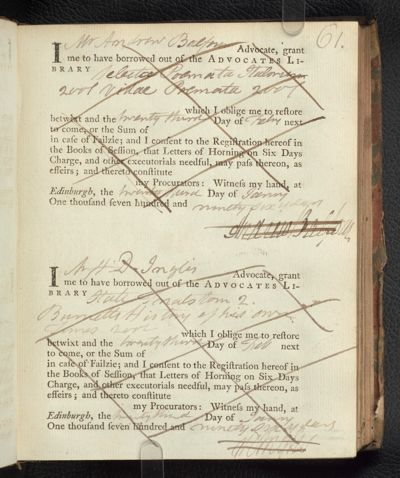 61.
I Mr Andrew Balfour Advocate, grant
me to have borrowed out of the ADVOCATES LI-
BRARY Selecta Poemata Italorum
2 vol Vidae Poemata 2 vol
which I oblige me to restore
betwixt and the twenty third Day of Feby next
to come, or the Sum of
in case of Failzie; and I consent to the Registration hereof in
the Books of Session, that Letters of Horning on Six Days
Charge, and other executorials needful, may pass thereon, as
effeirs; and thereto constitute
my Procurators: Witness my hand, at
Edinburgh, the twenty third Day of Janry
One thousand seven hundred and ninety six years
Andrew Balfour
I Mr H D. Inglis Advocate, grant
me to have borrowed out of the ADVOCATES LI-
BRARY State Trials tom 2.
Burnet's History of his own
times 2 vol
which I oblige me to restore
betwixt and the twenty third Day of Feb next
to come, or the Sum of
in case of Failzie; and I consent to the Registration hereof in
the Books of Session, that Letters of Horning on Six Days
Charge, and other executorials needful, may pass thereon, as
effeirs; and thereto constitute
my Procurators: Witness my hand, at
Edinburgh, the twenty third Day of Janry
One thousand seven hundred and ninety six years